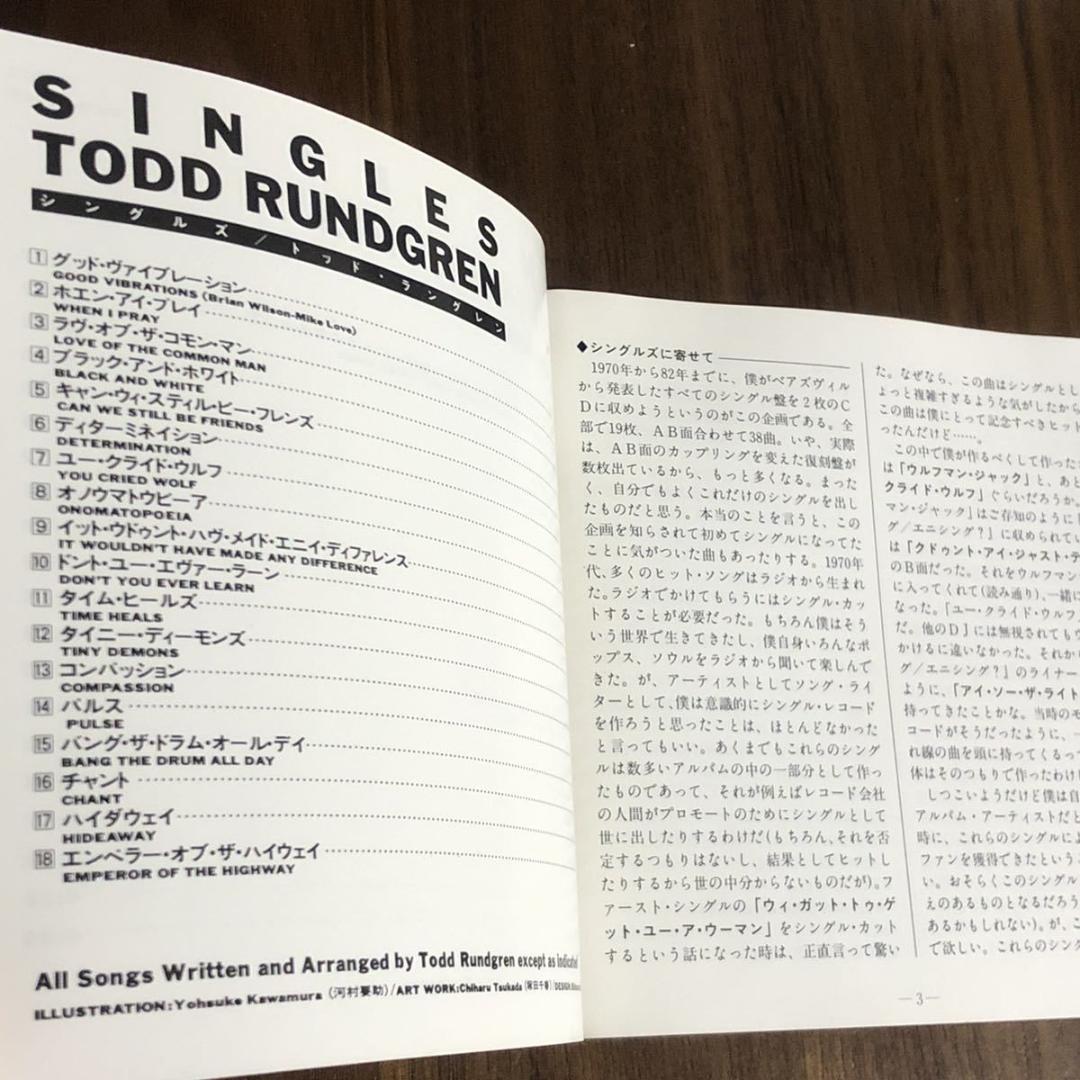 SINGLES
TODD RUNDGREN
シングルズ／トッド・ラングレン
1 グッド・ヴァイブレーション
GOOD VIBRATIONS (Brian Wilson-Mike Love)
2 ホエン・アイ・プレイ
WHEN I PRAY
3 ラヴ・オブ・ザ・コモン・マン
LOVE OF THE COMMON MAN
4 ブラック・アンド・ホワイト
BLACK AND WHITE
5 キャン・ウィ・スティル・ビー・フレンズ
CAN WE STILL BE FRIENDS
6 ディターミネイション
DETERMINATION
7 ユー・クライド・ウルフ
YOU CRIED WOLF
8 オノウマトウピーア
ONOMATOPOEIA
9 イット・ウドゥント・ハヴ・メイド・エニイ・ディファレンス
IT WOULDN'T HAVE MADE ANY DIFFERENCE
10 ドント・ユー・エヴァー・ラーン
DON'T YOU EVER LEARN
11 タイム・ヒールズ
TIME HEALS
12 タイニー・ディーモンズ
TINY DEMONS
13 コンパッション
COMPASSION
14 パルス
PULSE
15 バング・ザ・ドラム・オール・デイ
BANG THE DRUM ALL DAY
16 チャント
CHANT
17 ハイダウェイ
HIDEAWAY
18 エンペラー・オブ・ザ・ハイウェイ
EMPEROR OF THE HIGHWAY
All Songs Written and Arranged by Todd Rundgren except as Indicated
ILLUSTRATION:Yohsuke Kawamura (河村要助)/ART WORK:Chiharu Tsukada (塚田千春)/DESIGN:
◆シングルズに寄せて
1970年から82年までに、僕がベアズヴィル
から発表したすべてのシングル盤を2枚のC
Dに収めようというのがこの企画である。全
部で19枚、AB面合わせて38曲。いや、実際
は、AB面のカップリングを変えた復刻盤が
数枚出ているから、もっと多くなる。まった
く、自分でもよくこれだけのシングルを出し
たものだと思う。本当のことを言うと、この
企画を知らされて初めてシングルになってた
ことに気がついた曲もあったりする。1970年
代、多くのヒット・ソングはラジオから生まれ
た。ラジオでかけてもらうにはシングル・カッ
トすることが必要だった。もちろん僕はそう
いう世界で生きてきたし、僕自身いろんなポ
ップス、ソウルをラジオから聞いて楽しんで
きた。が、アーティストとしてソング・ライ
ターとして、僕は意識的にシングル・レコード
を作ろうと思ったことは、ほとんどなかった
と言ってもいい。あくまでもこれらのシング
ルは数多いアルバムの中の一部分として作っ
たものであって、それが例えばレコード会社
の人間がプロモートのためにシングルとして
世に出したりするわけだ(もちろん、それを否
定するつもりはないし、結果としてヒットし
たりするから世の中分からないものだが)。フ
ァースト・シングルの「ウィ・ガット・トゥ・ゲ
ット・ユー・ア・ウーマン」をシングル・カット
するという話になった時は、正直言って驚い
た。なぜなら、この曲はシングルとし
ょっと複雑すぎるような気がしたから
この曲は僕にとって記念すべきヒット
ったんだけど……。
この中で僕が作るべくして作った
は「ウルフマン・ジャック」と、あと
クライド・ウルフ」ぐらいだろうか。
マン・ジャック」はご存知のように
グ/エニシング？」に収められてい
は「クドゥント・アイ・ジャスト・テ
のB面だった。それをウルフマン
に入ってくれて(読み通り)、一緒に
なった。「ユー・クライド・ウルフ
だ。他のDJには無視されてもウ
かけるに違いなかった。それか
グ/エニシング？」のライナー
ように、「アイ・ソー・ザ・ライト
持ってきたことかな。当時のモ
コードがそうだったように、一
れ線の曲を頭に持ってくるって
体はそのつもりで作ったわけ
しつこいようだけど僕は自
アルバム・アーティストだと
時に、これらのシングルによ
ファンを獲得できたという
い。おそらくこのシングル
えのあるものとなるだろう
あるかもしれない)。が、こ
で欲しい。これらのシング
—3—